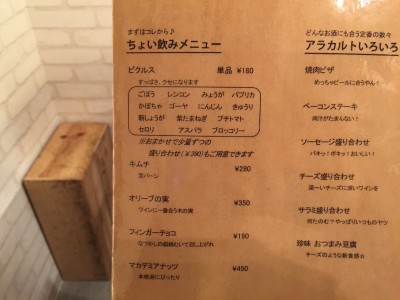 まずはコレから♪
ちょい飲みメニュー
ピクルス 単品 ¥180
すっぱさ、クセになります
ごぼう レンコン みょうが パプリカ
かぼちゃ ゴーヤ にんじん きゅうり
新しょうが 紫たまねぎ プチトマト
セロリ アスパラ ブロッコリー
※おまかせで少量ずつの
盛り合わせ(¥390)もご用意できます
キムチ ¥280
オリーブの実 ¥350
ワインに一番合うあの実
フィンガーチョコ ¥190
なつかしの銀紙むいて召し上がれ
マカデミアナッツ ¥450
本格派にぴったり
どんなお酒にも合う定番の数々
アラカルトいろいろ
焼肉ピザ
めっちゃビールに合うやん!
ベーコンステーキ
肉汁がたまんない!
ソーセージ盛り合わせ
パキっ!ポキっ!おいしい!
チーズ盛り合わせ
濃ーいチーズに渋いワインを
サラミ盛り合わせ
何たのむ?やっぱりいつものヤツ
珍味 おつまみ豆腐
チーズのような新食感☆